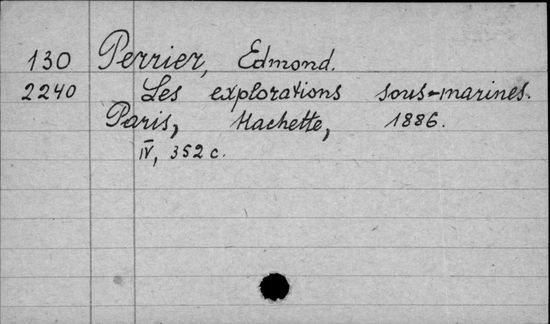 130 Perrier, Edmond.
2240 Les explorations sous-marines.
Paris, Hachette, 1886.
IV, 352 c.